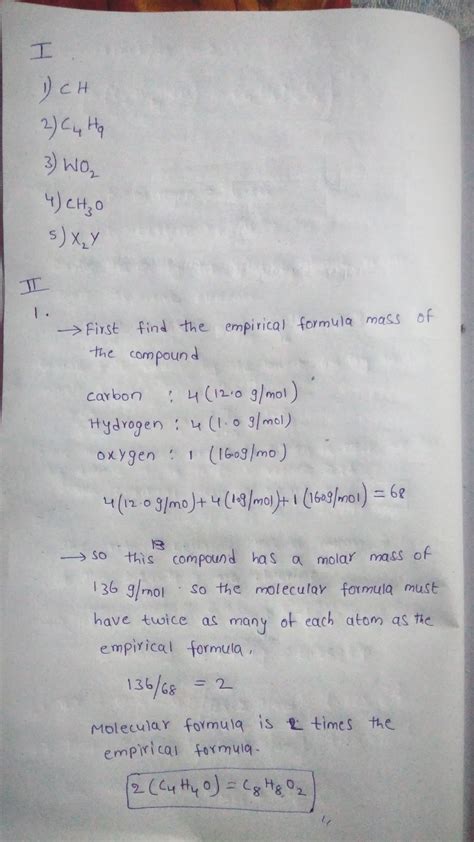 I
1) CH
2) C₄H₉
3) WO₂
4) CH₃O
5) X₂Y
II
1.
→ First find the empirical formula mass of
the compound
carbon : 4 (12.0 g/mol)
Hydrogen : 4 (1.0 g/mol)
oxygen : 1 (160g/mo)
4(12.0g/mo)+4(10g/mol)+1(160g/mol) = 68
→ so this compound has a molar mass of
136 g/mol. so the molecular formula must
have twice as many of each atom as the
empirical formula.
136/68 = 2
Molecular formula is 2 times the
empirical formula.
2(C₄H₄O) = C₈H₈O₂